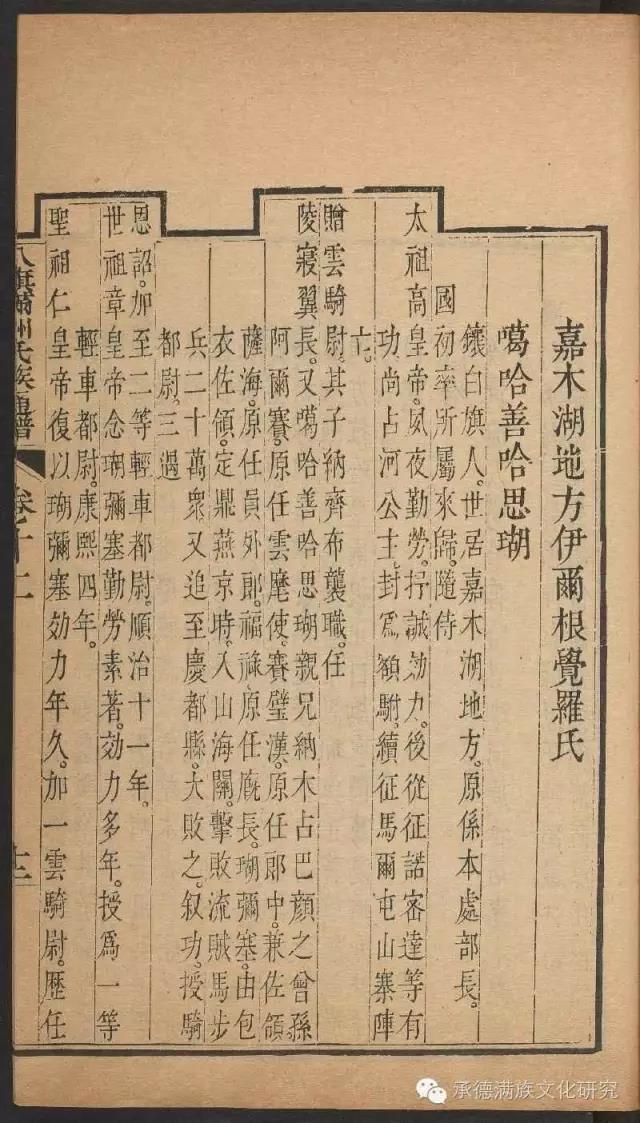 嘉木湖地方伊爾根覺羅氏
噶哈善哈思瑚
鑲白旗人。世居嘉木湖地方。原係本處部長。
國初率所屬來歸。隨侍
太祖高皇帝。夙夜勤勞。抒誠効力。後從征諾密達等有
功。尚占河公主。封爲額駙。續征馬爾屯山寨陣
亡。
贈雲騎尉。其子納齊布襲職。任
陵寢翼長。又噶哈善哈思瑚親兄納木占巴顏之曾孫
阿爾賽。原任雲麾使。賽璧漢。原任郎中。兼佐領。
薩海。原任員外郎。福祿。原任廐長。瑚彌塞。由包
衣佐領。定鼎燕京時。入山海關。擊敗流賊馬步
兵二十萬衆。又追至慶都縣。大敗之。叙功。授騎
都尉。三遇
恩詔。加至二等輕車都尉。順治十一年。
世祖章皇帝念瑚彌塞勤勞素著。効力多年。授爲一等
輕車都尉。康熙四年。
聖祖仁皇帝復以瑚彌塞効力年久。加一雲騎尉。歷任
八旗滿洲氏族通譜 卷十二 十二
承德满族文化研究